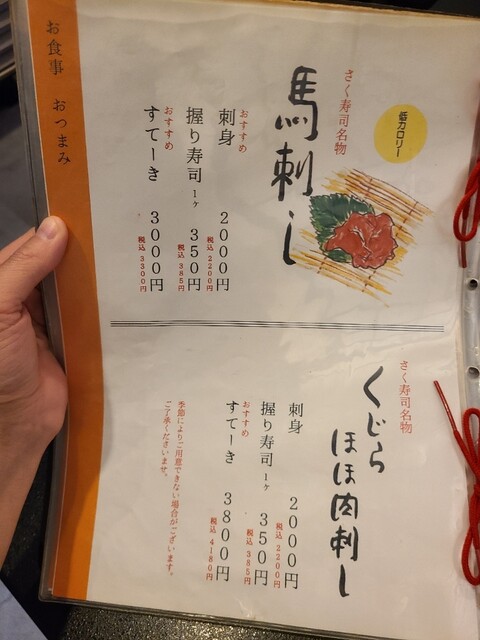 お食事 おつまみ
低カロリー
さく寿司名物
馬刺し
おすすめ
刺身 2000円
税込 2200円
握り寿司 1ヶ 350円
税込 385円
おすすめ
すてーき 3000円
税込 3300円
さく寿司名物
くじら
ほほ肉刺し
刺身 2000円
税込 2200円
握り寿司 1ヶ 350円
税込 385円
おすすめ
すてーき 3800円
税込 4180円
季節によりご用意できない場合がございます。
ご了承くださいませ。